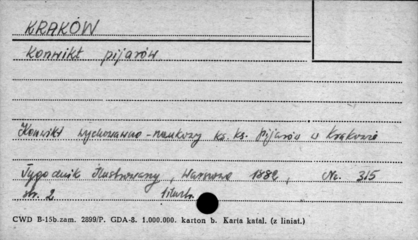 KRAKÓW
Konwikt pijarów
Konwikt wychowawno-naukowy ks. ks. Pijarów w Krakowie
Tygodnik Illustrowany, Warszawa 1882, No. 315
str. 2
CWD B-15b.zam. 2899/P. GDA-8. 1.000.000. karton b. Karta katal. (z liniat.)